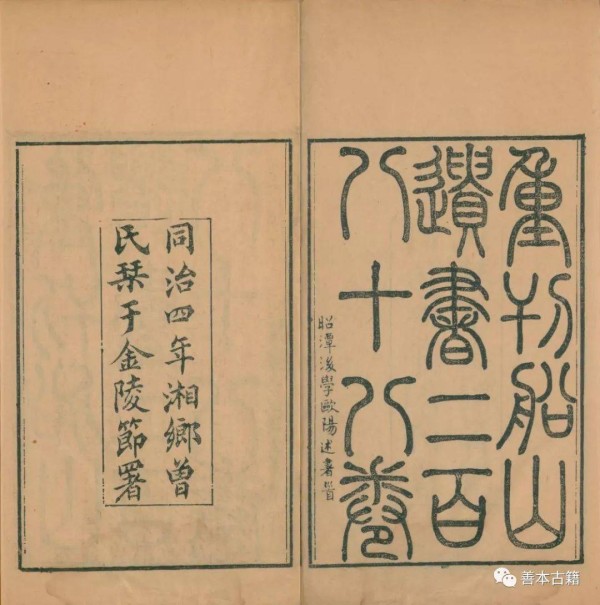 重刊船山
遺書二百
八十八卷
昭潭後學歐陽述署
同治四年湘鄉曾
氏栞于金陵節署
善本古籍